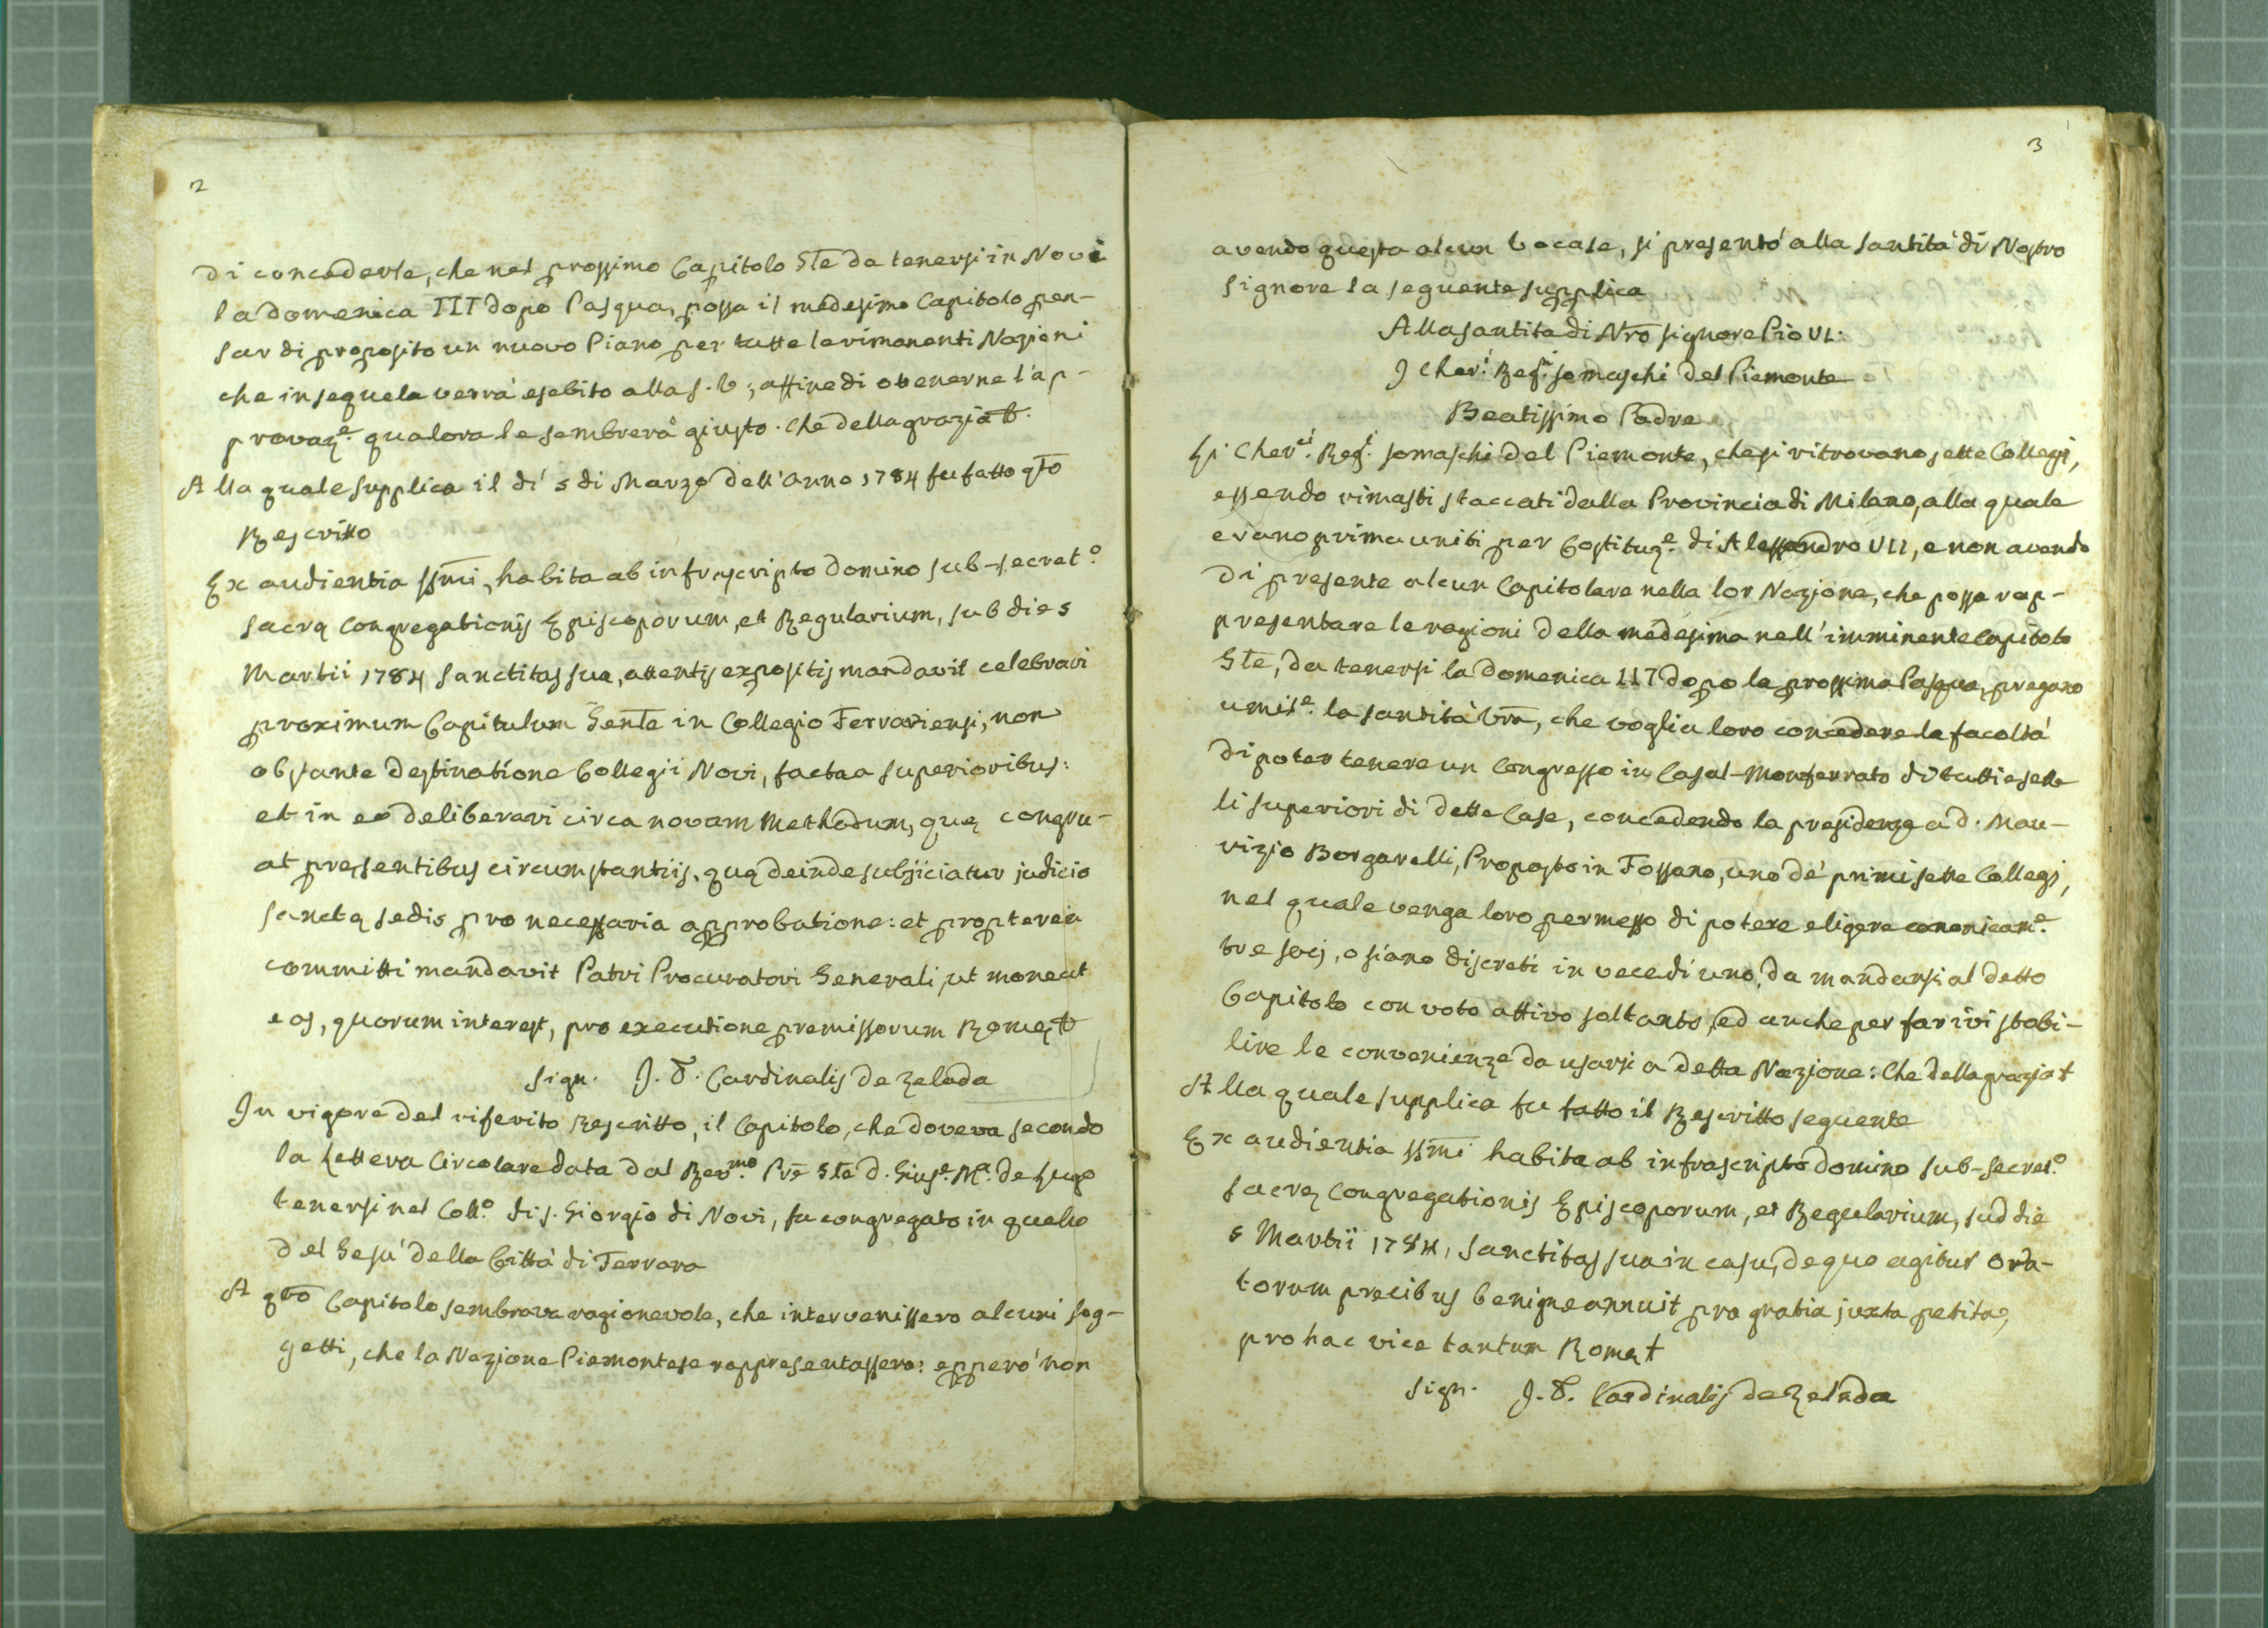 2
di concederle, che nel prossimo Capitolo Gle da tenersi in Novi
la domenica III dopo Pasqua, possa il medesimo Capitolo pen-
sar di proposito un nuovo Piano per tutte le rimanenti Nazioni
che in sequela verrà esebito alla S. V; affine di ottenerne l'ap-
provaz.e qualora le sembrerà giusto. Che della grazia
Alla quale supplica il dì 5 di Marzo dell'anno 1784 fu fatto qto
Rescritto
Ex audientia SSmi, habita ab infrascripto domino sub-secret.o
Sacrę Congregationis Episcoporum, et Regularium, sub die 5
Martii 1784 Sanctitas sua, attentis expositis mandavit celebrari
proximum Capitulum Genle in Collegio Ferrariensi, non
obstante destinatione Collegii Novi, facta a superioribus:
et in eo deliberari circa novam Methodum, quę congru-
at presentibus circumstantiis, quę deinde subjiciatur judicio
sanctę sedis pro necessaria approbatione: et propterea
committi mandavit Patri Procuratori Generali, ut moneat
eos, quorum interest, pro executione premissorum Romę
Sign. J. X. Cardinalis de Zelada
In vigore del riferito Rescritto, il Capitolo, che doveva secondo
la Lettera Circolare data dal Rev.mo Pre Gle d. Gius.e M.a de Lugo
tenersi nel Coll.o di S. Giorgio di Novi, fu congregato in quello
del Gesù della Città di Ferrara
A qto Capitolo sembrava ragionevole, che intervenissero alcuni sog-
getti, che la Nazione Piemontese rappresentassero: epperò non
3
avendo questa alcun Vocale, si presentò alla Santità di Nostro
Signore la seguente supplica
Alla Santità di Nro Signore Pio VI.
I Cher.i Reg.ri Somaschi del Piemonte
Beatissimo Padre
Li Cher.ci Reg.i Somaschi del Piemonte, che si ritrovano sette Collegi,
essendo rimasti staccati dalla Provincia di Milano, alla quale
erano prima uniti per Costituz.e di Alessandro VII, e non avendo
di presente alcun Capitolare nella lor Nazione, che possa rap-
presentare le ragioni della medesima nell'imminente Capitolo
Gle, da tenersi la domenica III dopo la prossima Pasqua, pregano
umil.e la Santità Vra, che voglia loro concedere la facoltà
di poter tenere un Congresso in Casal-Monferrato di tutti e sette
li superiori di dette Case, concedendo la presidenza a d. Mau-
rizio Borgarelli, Proposto in Fossano, uno de' primi sette Collegi,
nel quale venga loro permesso di potere eligere canonicam.e
tre socj, o siano discreti in vece di uno, da mandarsi al detto
Capitolo con voto attivo soltanto, ed anche per farivi stabi-
lire le convenienze da usarsi a detta Nazione: Che della grazia
Alla quale supplica fu fatto il Rescritto seguente
Ex audientia SSmi habita ab infrascripto domino sub-secret.o
sacrę Congregationis Episcoporum, et Regularium, sud die
5 Martii 1784, Sanctitas sua in casu, de quo agitur ora-
torum precibus benigne annuit pro gratia juxta petita,
pro hac vice tantum Romę
Sign. J. X. Cardinalis de Zelada